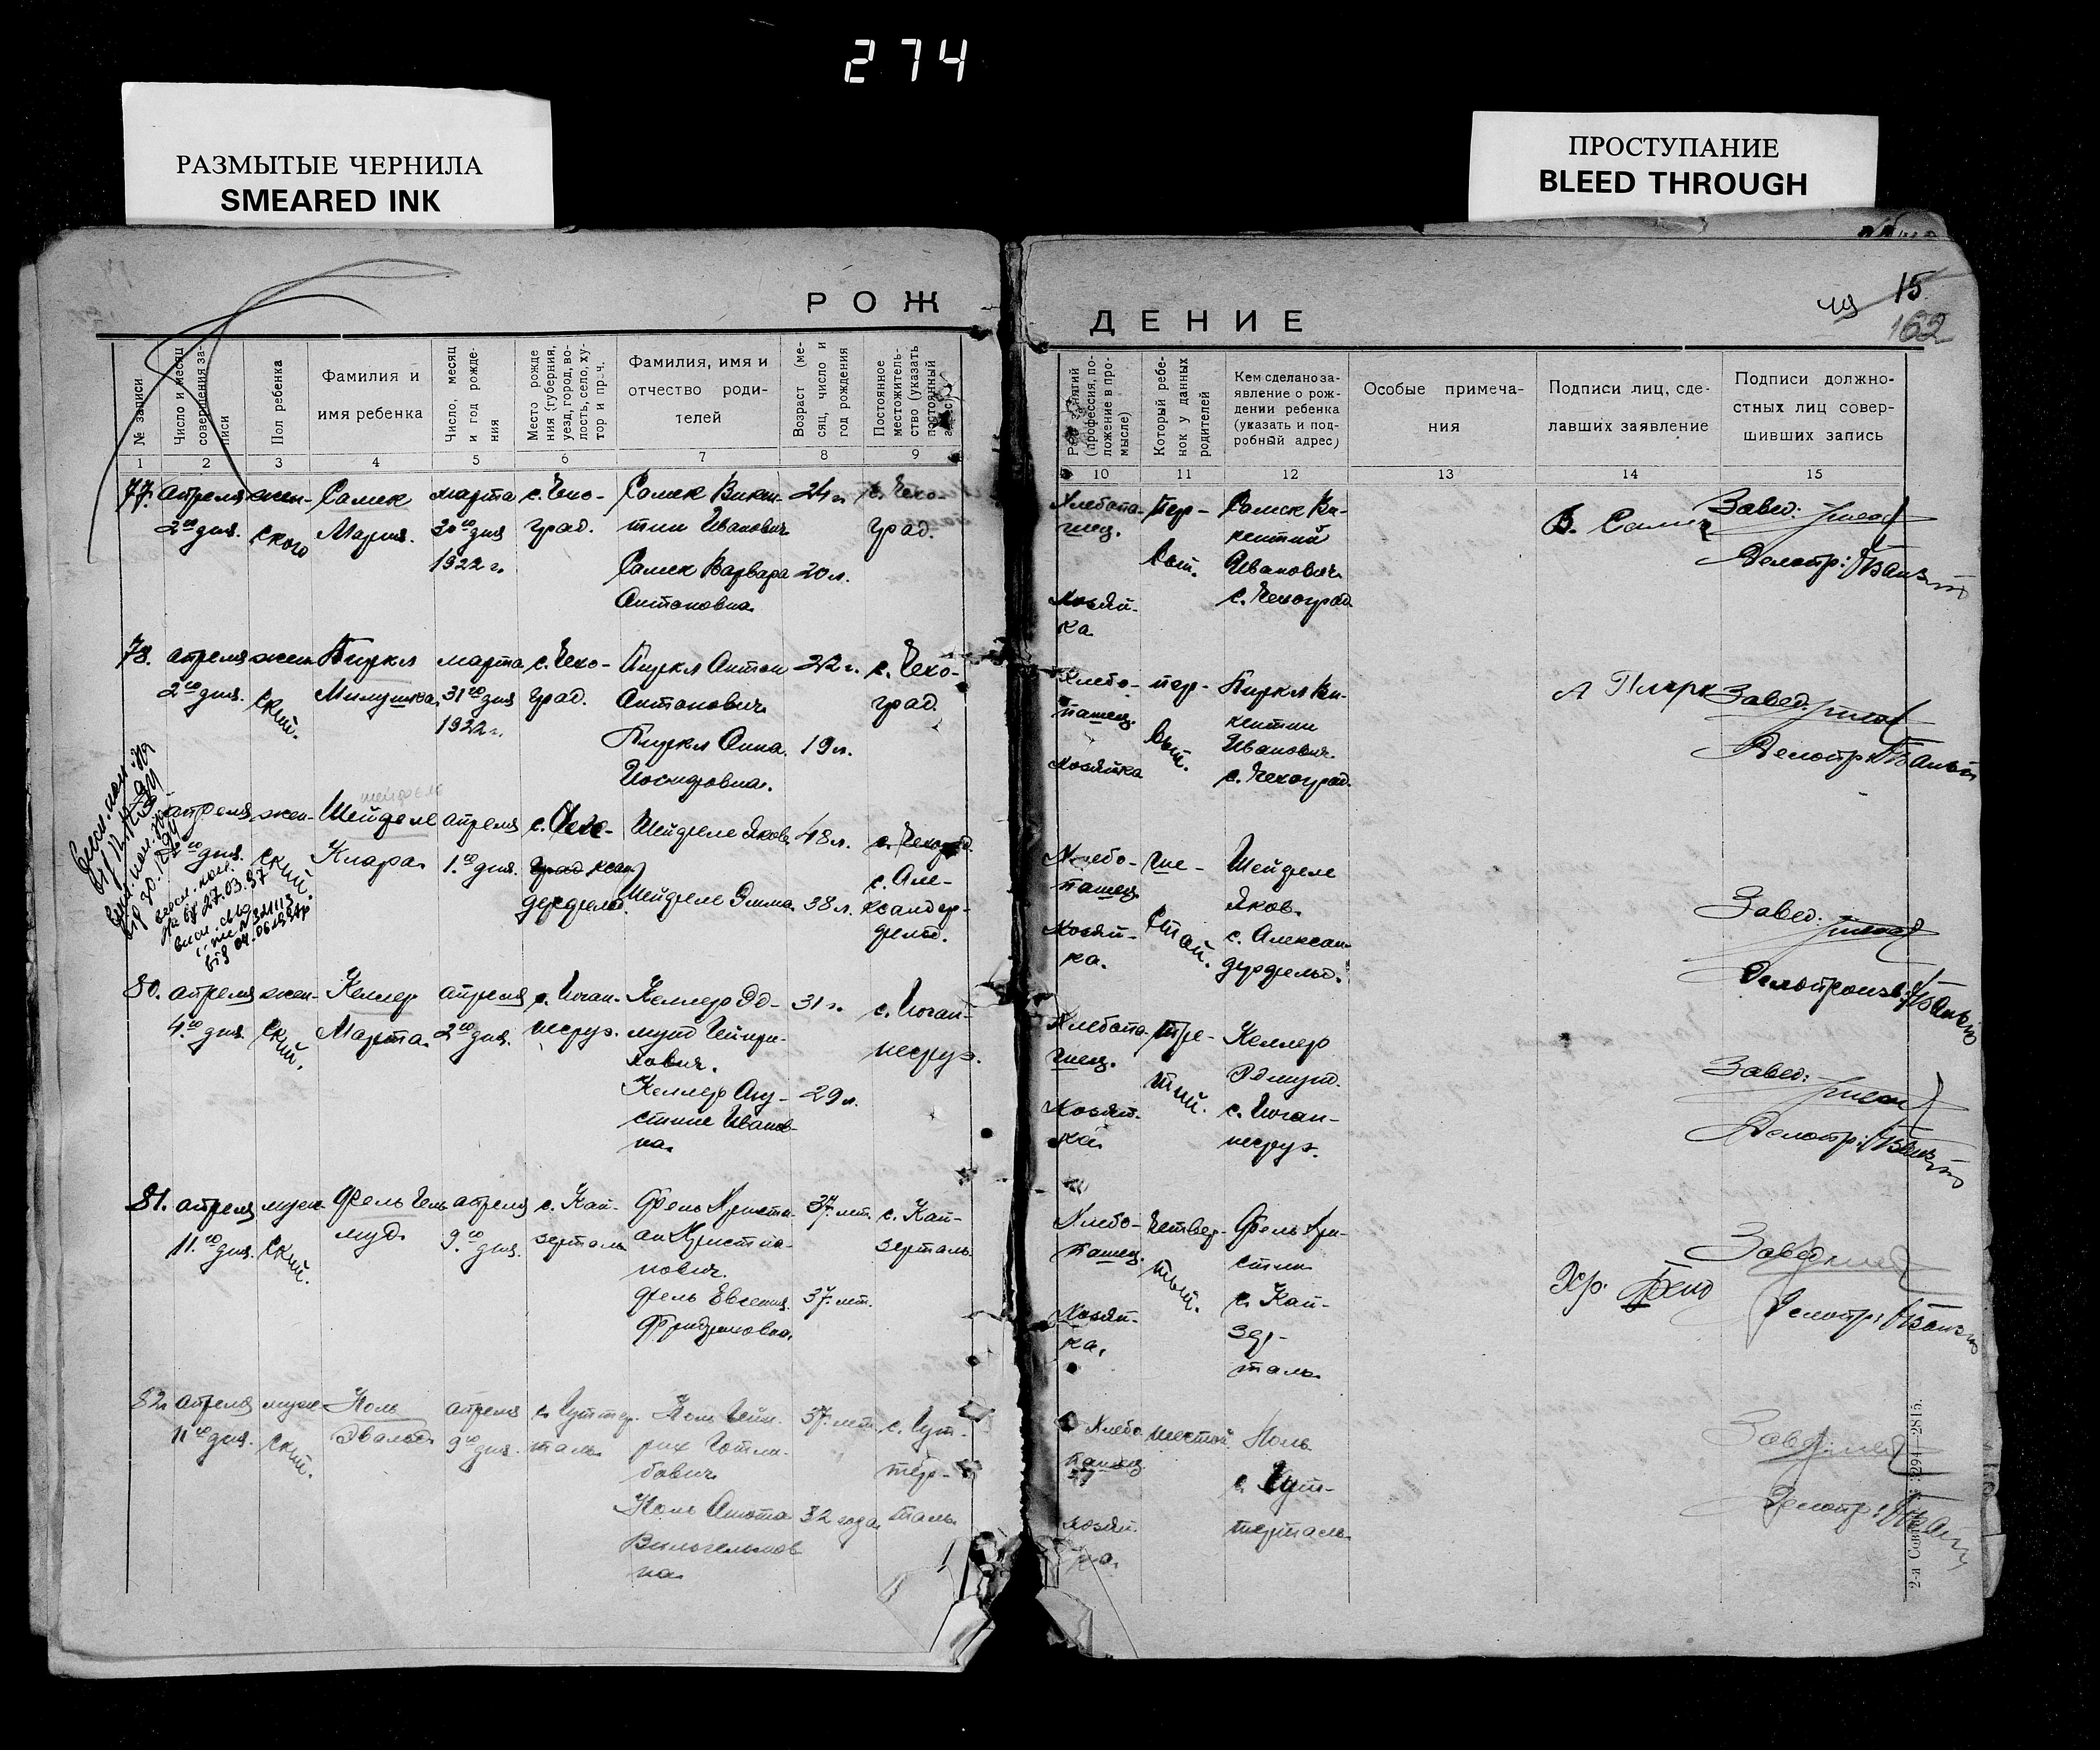 274
РАЗМЫТЫЕ ЧЕРНИЛА
SMEARED INK
ПРОСТУПАНИЕ
BLEED THROUGH
15
162
РОЖ
ДЕНИЕ
№ записи
Число и месяц совершения записи
Пол ребенка
Фамилия и
имя ребенка
Число, месяц
и год рожде-
ния
Место рожде
ния (губерния,
уезд, город, во-
лость, село, ху-
тор и проч.
Фамилия, имя и
отчество роди-
телей
Возраст (ме-
сяц, число и
год рождения
Постоянное
местожитель-
ство (указать
постоянный
адрес)
(профессия, по-
ложение в про-
мысле)
Который ребе-
нок у данных
родителей
Кем сделано за-
явление о рож-
дении ребенка
(указать и под-
робный адрес)
Особые примеча-
ния
Подписи лиц, сде-
лавших заявление
Подписи должно-
стных лиц совер-
шивших запись
1 2 3 4 5 6 7 8 9
10 11 12 13 14 15
77.
апреля
2го дня.
жен-
ского
Самек
Мария.
марта
30го дня
1922 г.
с. Чехо-
град.
Самек Викен-
тии Иванович
Самек Варвара
Антоновна
24 г.
20 л.
с. Чехо-
град.
Хлебопа-
шец.
Хозяй-
ка
Пер-
вый.
Самек Ви-
кентий
Иванович
с. Чехоград
Завед.
Делопр:
78.
апреля
2го дня.
жен-
ский.
Пиркл
Милушка
марта
31го дня
1922 г.
с. Чехо-
град.
Пиркл Антон
Антонович
Пиркл Анна
Иосифовна.
22 г.
19 л.
с. Чехо-
град.
Хлебо-
пашец.
Хозяйка
пер-
вый.
Пиркл Ви-
кентии
Иванович
с. Чехоград.
Завед.
Делопр:
апреля
дня.
жен-
ский.
Шейфеле
Клара
апреля
1го дня.
с. Чехо-
град
Шейфеле Яков
Шейфеле Эмма
48 л.
38 л.
с. Чехоград
с. Але-
ксандер-
фельд.
Хлебо-
пашец
Хозяй-
ка.
ше-
стой.
Шейфеле
Яков.
с. Алексан-
дерфельд.
Завед.
Делопроизв:
80.
апреля
4го дня
жен-
ский.
Келлер
Марта
апреля
2го дня.
с. Иоган-
несруэ.
Келлер Эд-
мунд Гейнри-
хович.
Келлер Авгу-
стине Иванов-
на
31 г.
29 л.
с. Иоган-
несруэ.
Хлебопа-
шец.
Хозяй-
ка
тре-
тий.
Келлер
Эдмунд.
с. Иоган-
несруэ.
Завед:
Делопр:
81.
апреля
11.го дня.
муж-
ский.
Фель Гель-
муд
апреля
9.го дня.
с. Кай-
зерталь
Фель Христи-
ан Христиа-
нович.
Фель Евгения
Фридриховна.
37 лет.
37 лет.
с. Кай-
зерталь
Хлебо-
пашец.
Хозяй-
ка.
Четвер-
тый.
Фель Хри-
стиан
с. Кай-
зер-
таль
Хр.
Завед
Делопр:
82.
апреля
11го дня.
муж-
ский.
Ноль
Эвальд
апреля
9го дня.
с. Гуттер-
таль
Ноль Гейн-
рих Готли-
бович
Ноль Анюта
Вильгельмов
на
37 лет.
32 года
с. Гут-
тер-
таль
Хлебо
пашец
хозяй
ка.
шестой
Ноль
с. Гут-
терталь
Завед.
Делопр: